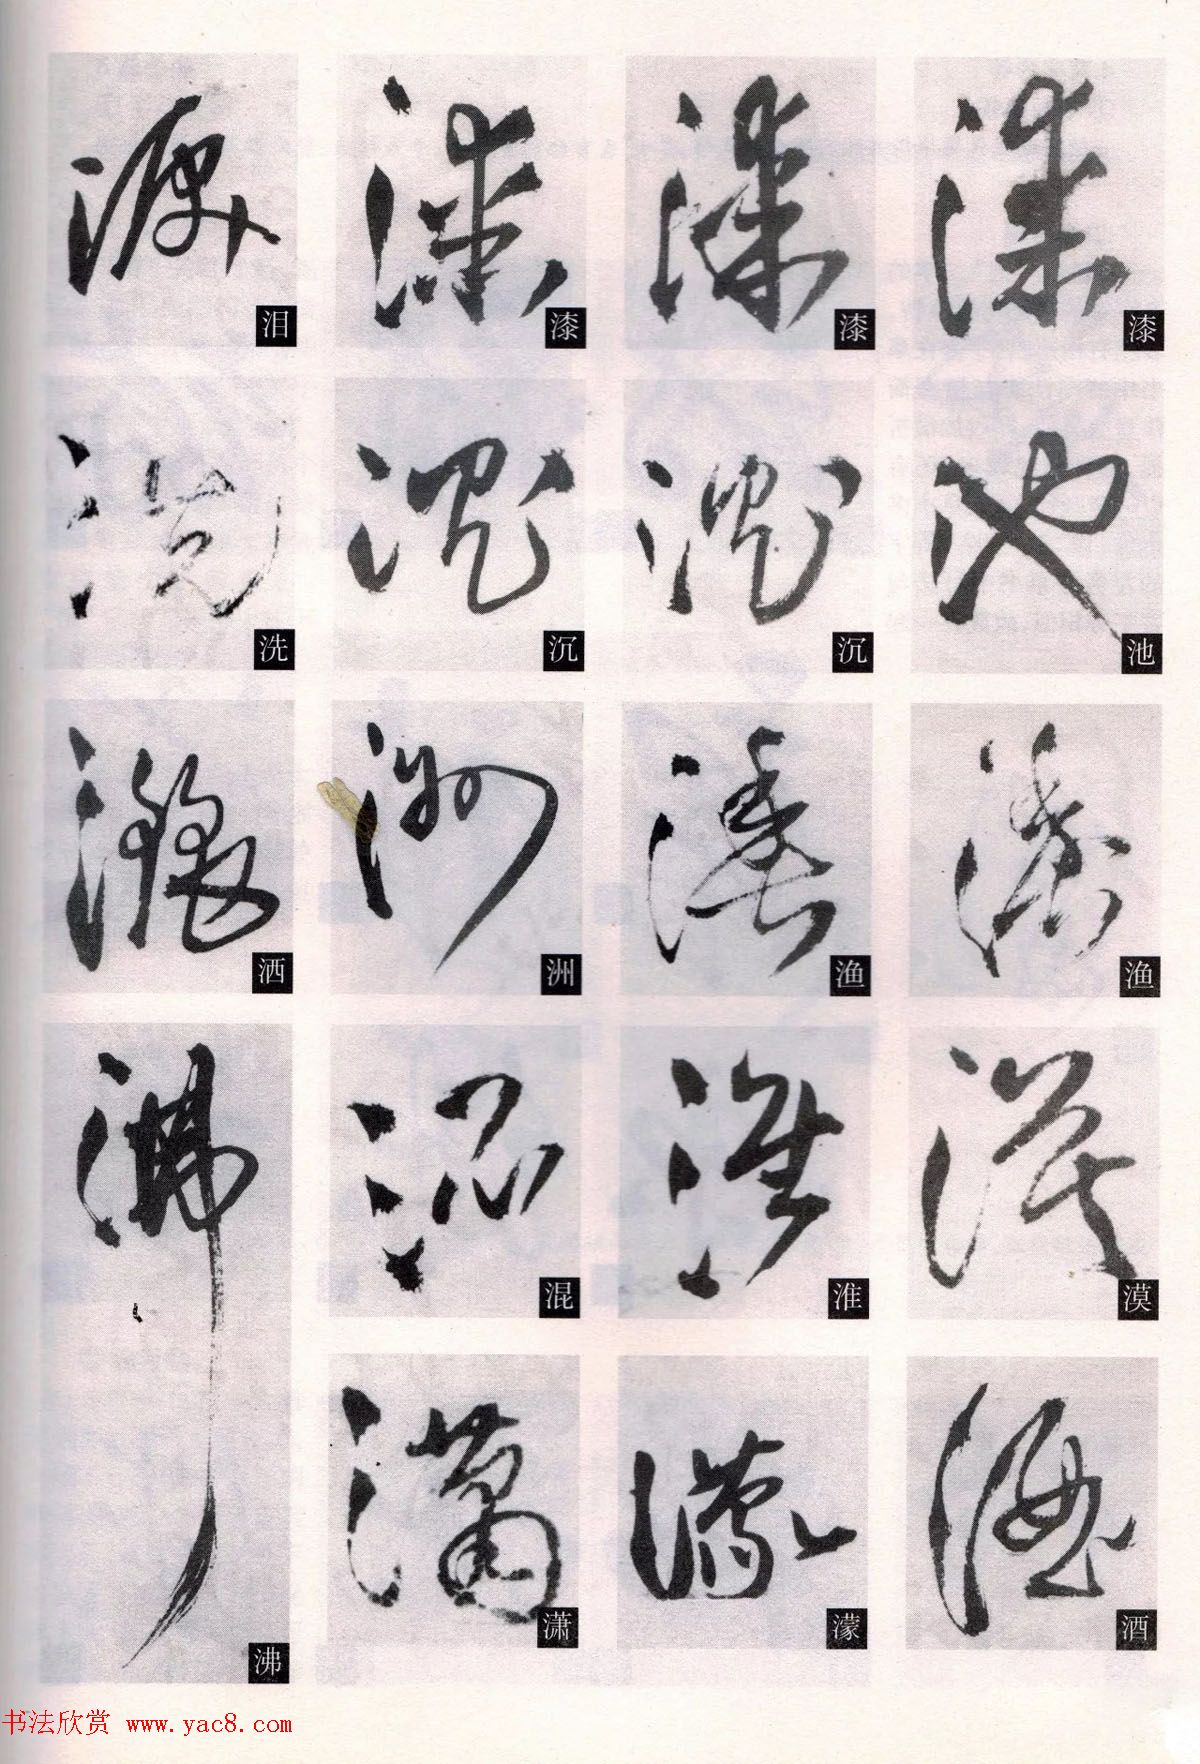 泪 漆 漆 漆
洗 沉 沉 池
洒 洲 渔 渔
沸 混 淮 漠
潇 濛 酒
书法欣赏 www.yac8.com